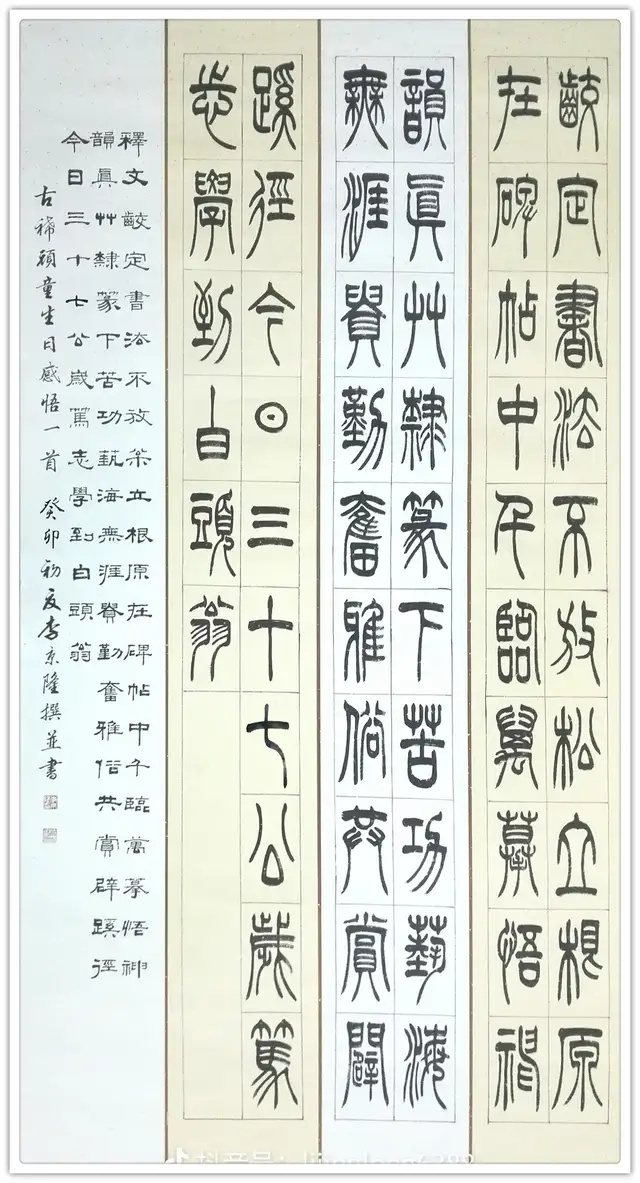 齩定書法不放松立根原
在碑帖中千臨萬摹悟神
韻眞艸隸篆下苦功藝海
無涯貴勤奮雅俗共賞闢
蹊徑今日三十七公歲篤
志學到白頭翁
釋文齩定書法不放枀立根原在碑帖中千臨萬摹悟神
韻眞艸隸篆下苦功蓺海無涯貴勤奮雅俗共賞辟蹊徑
今日三十七公歲篤志學到白頭翁
古稀頑童生日感悟一首 癸卯初夏李京隆撰並書